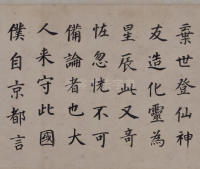 葉世登仙神
友造化靈為
星辰此又奇
恠忽恍不可
備論者也大
人来守此國
僕自京都言